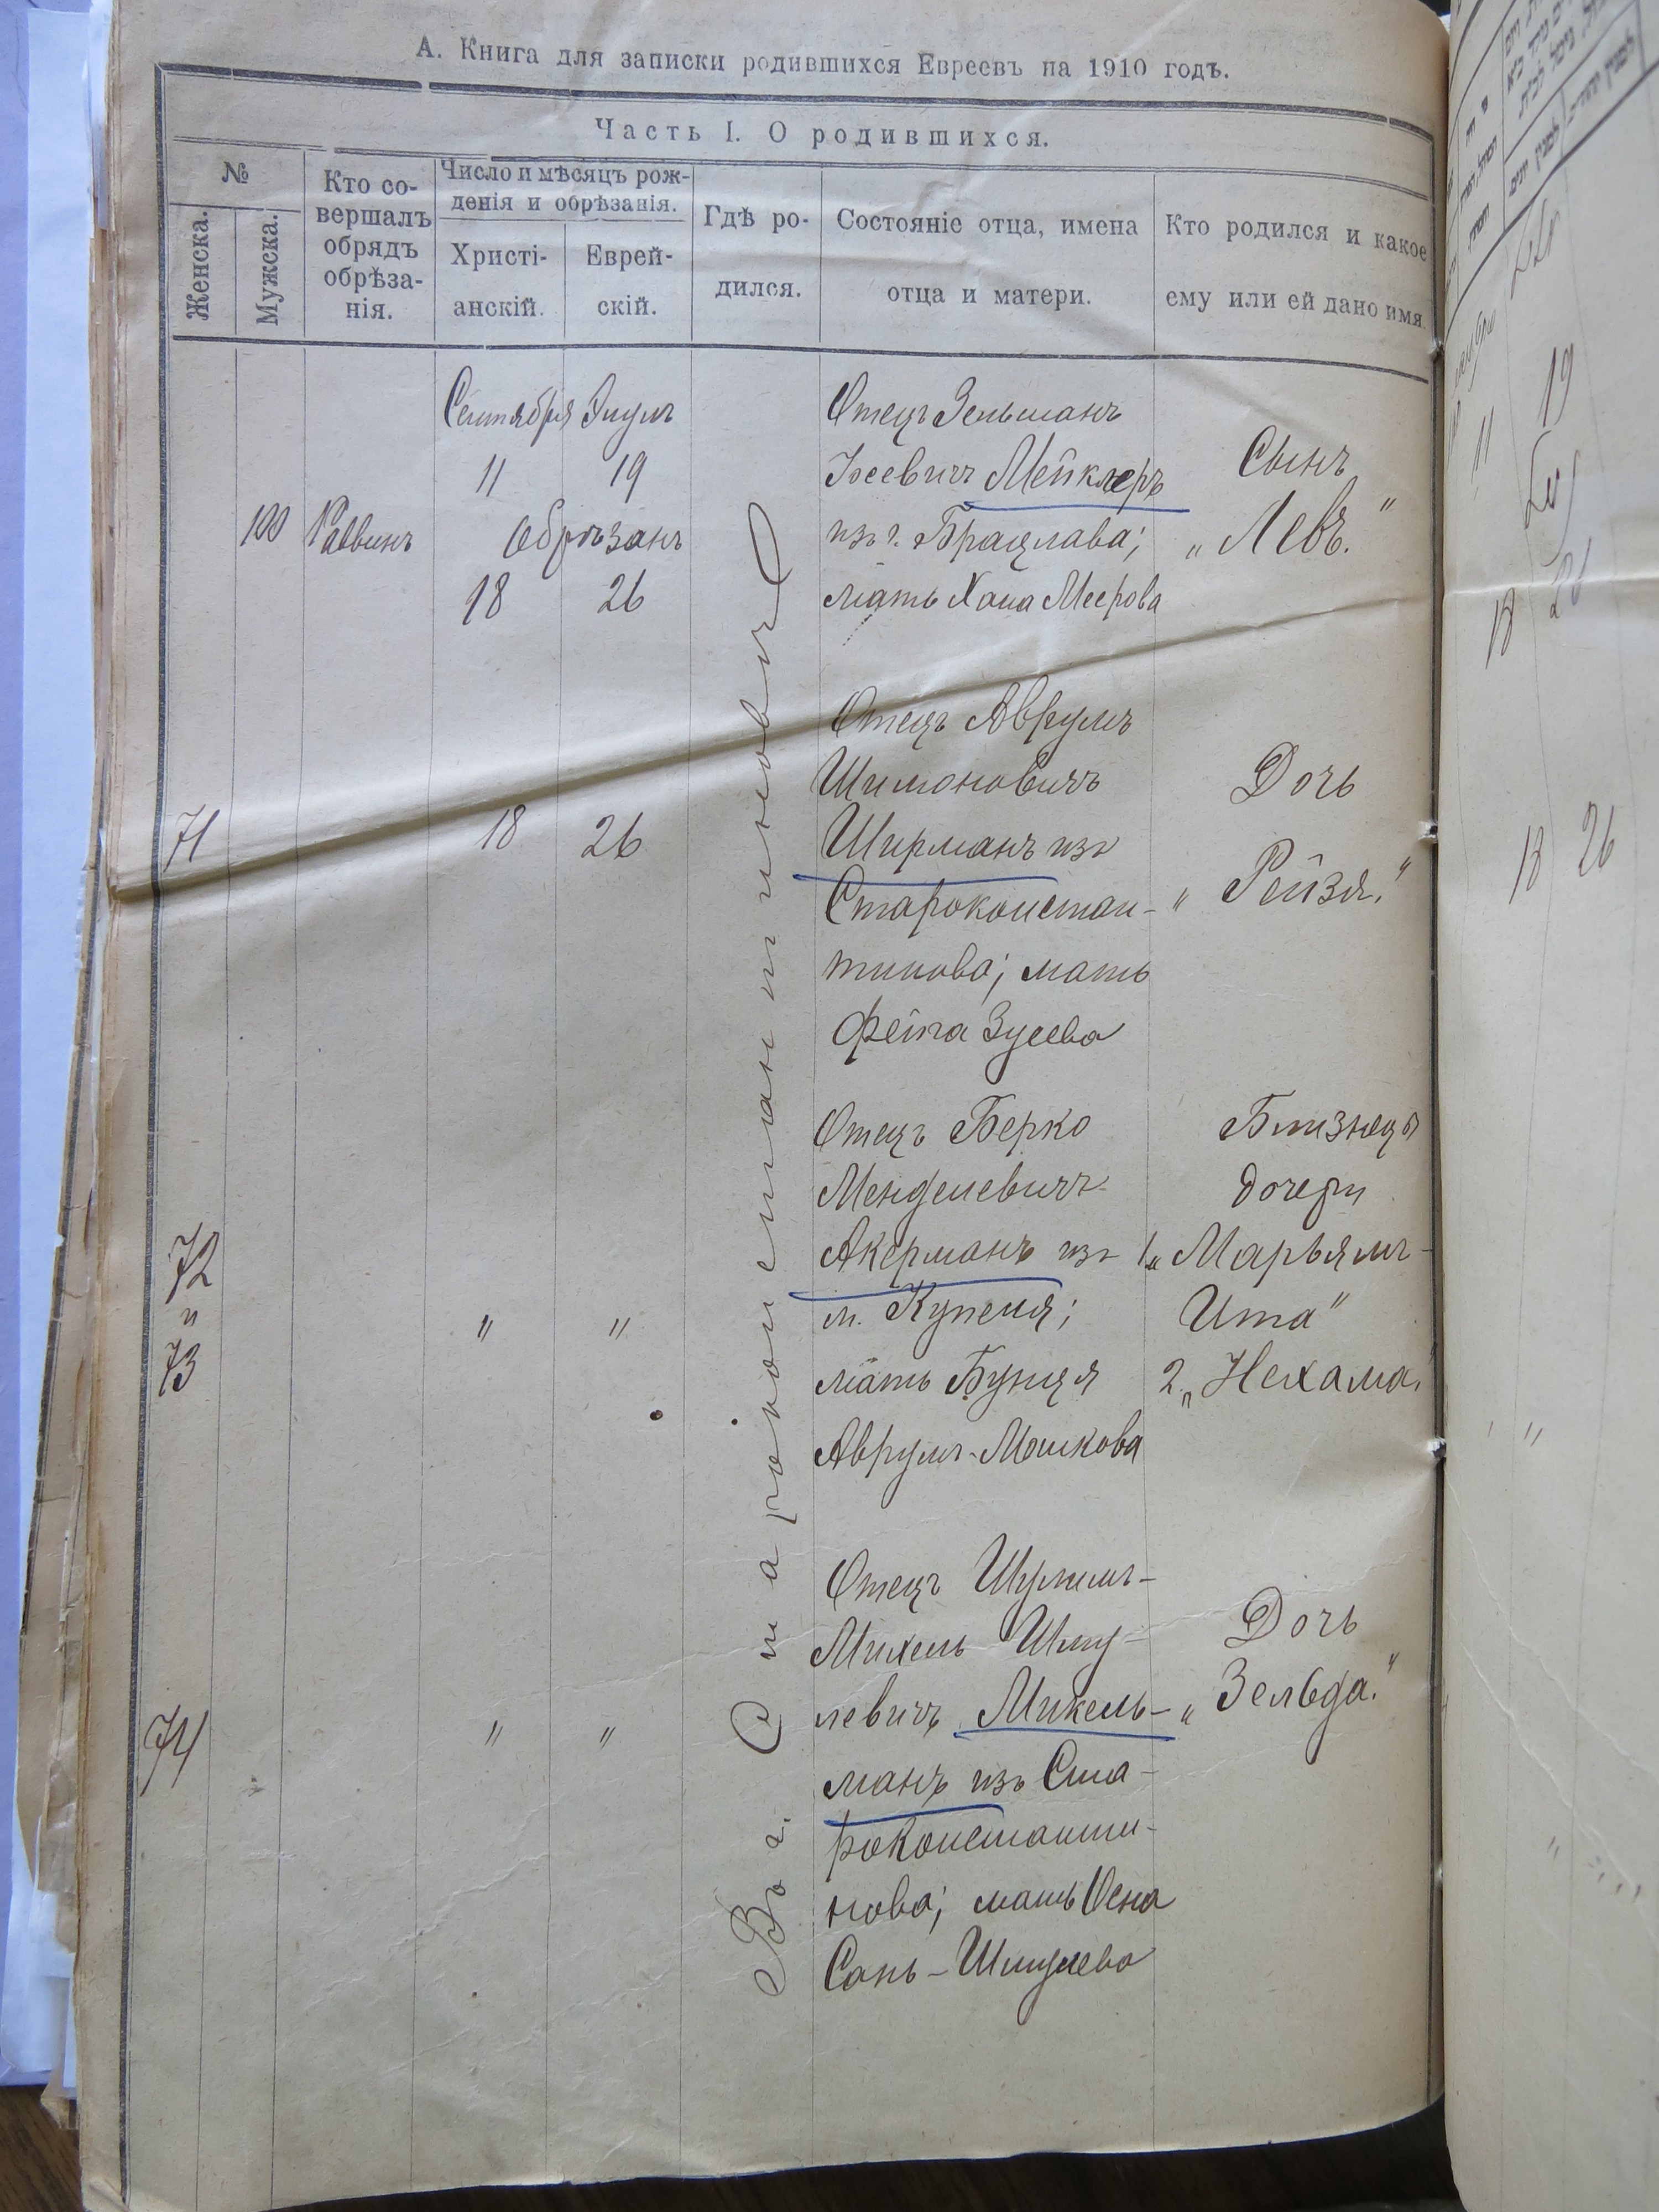 А. Книга для записки родившихся Евреевъ на 1910 годъ.
Часть I. О родившихся.
№
Женска.
Мужска.
Кто со-
вершалъ
обрядъ
обрѣза-
нія.
Число и мѣсяцъ рож-
денія и обрѣзанія.
Христі-
анскій.
Еврей-
скій.
Гдѣ ро-
дился.
Состояніе отца, имена
отца и матери.
Кто родился и какое
ему или ей дано имя.
Въ г. Староконстантиновѣ
100
Раввинъ
Сентября Элулъ
11 19
Обрѣзанъ
18 26
Отецъ Зельманъ
Іосевичъ Мейклеръ
изъ г. Брацлава;
мать Хана Меерова
Сынъ
„Левъ."
71
18 26
Отецъ Аврумъ
Шимоновичъ
Ширманъ изъ
Староконстан-
тинова; мать
Фейга Зусева
Дочь
„Рейзя."
72
и
73
" "
Отецъ Берко
Менделевичъ
Акерманъ изъ
м. Купеля;
мать Бунця
Аврумъ-Мошкова
Близнецы
дочери
1. „Марьямъ-
Ита"
2. „Нехама."
74
" "
Отецъ Шулимъ-
Михель Шму-
левичъ Микель-
манъ изъ Ста-
роконстанти-
нова; мать Осна
Сань-Шмулева
Дочь
„Зельда."
11 19
18 26
18 26